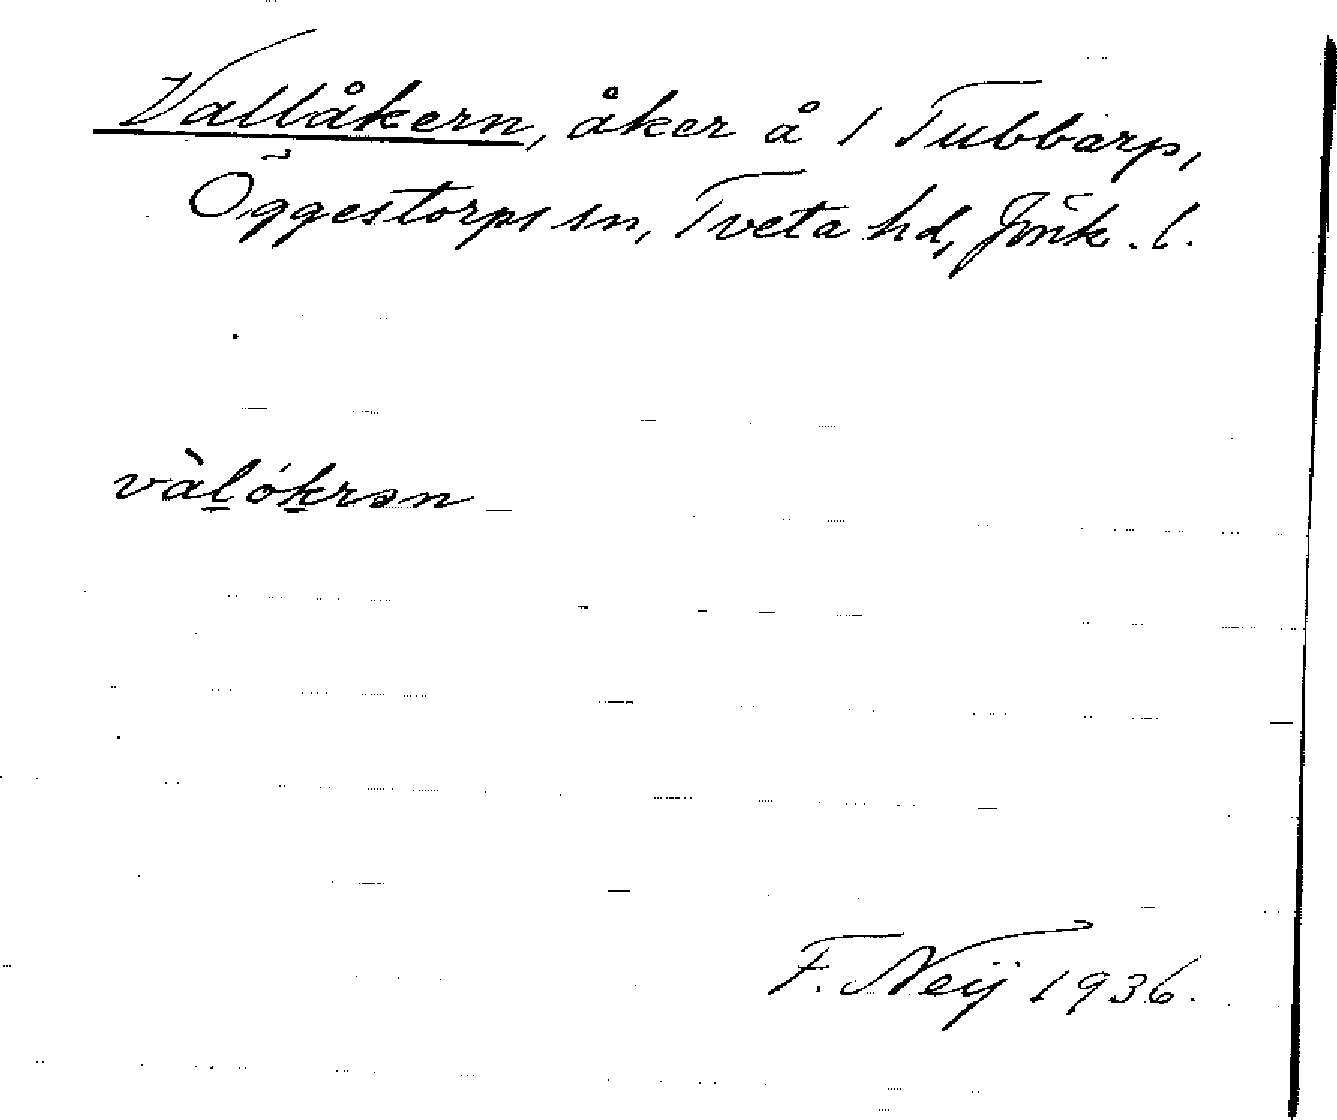 Vallåkern, åker å 1 Tubbarp,
Öggestorps sn, Tveta hd, Jönk. l.
vàl̠ók̠rən
F. Neij 1936.